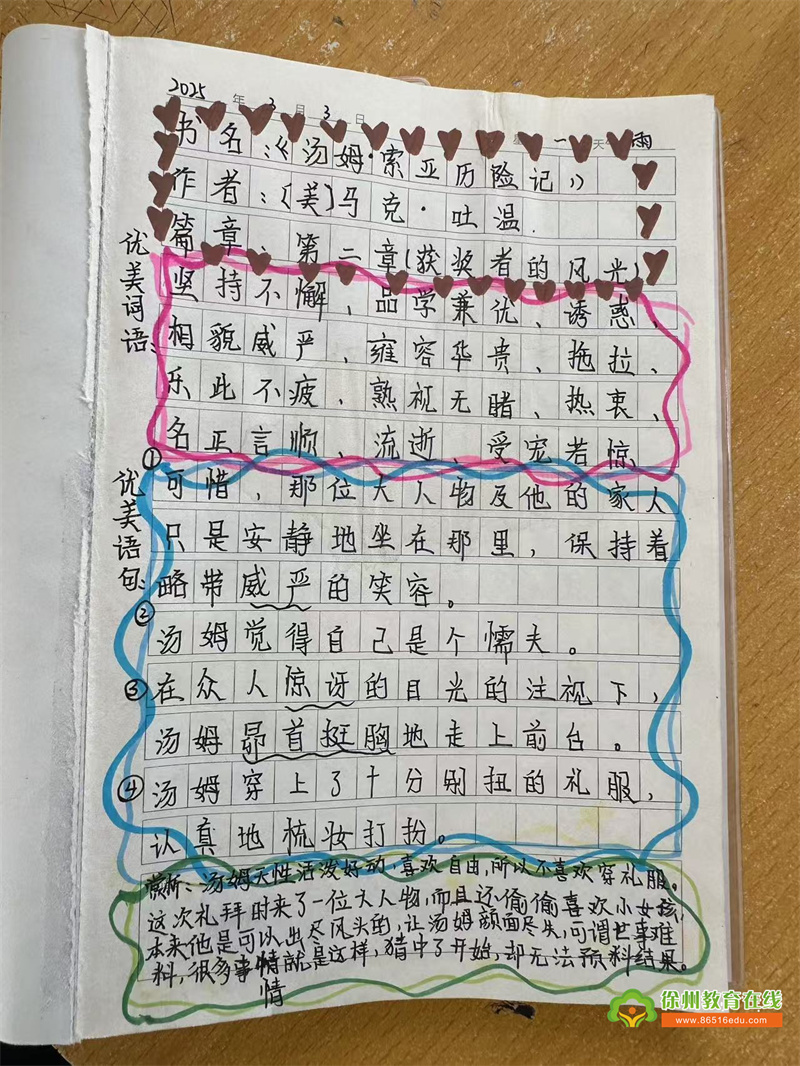 2025 年 3 月 3 日 星 一 天气 雨
书名:《汤姆·索亚历险记》
作者:(美)马克·吐温.
篇章:第二章(获奖者的风光)
优美词语:
坚持不懈、品学兼优、诱惑、
相貌威严、雍容华贵、拖拉、
乐此不疲、熟视无睹、热衷、
名正言顺、流逝、受宠若惊
优美语句:
①可惜,那位大人物及他的家人
只是安静地坐在那里,保持着
略带威严的笑容。
②汤姆觉得自己是个懦夫。
③在众人惊讶的目光的注视下,
汤姆昂首挺胸地走上前台。
④汤姆穿上了十分别扭的礼服,
认真地梳妆打扮。
赏析:汤姆天性活泼好动,喜欢自由,所以不喜欢穿礼服。
这次礼拜时来了一位大人物,而且还偷偷喜欢小女孩,
本来他是可以出尽风头的,让汤姆颜面尽失,可谓世事难
料,很多事情就是这样,猜中了开始,却无法预料结果。
情
徐州教育在线
www.86516edu.com